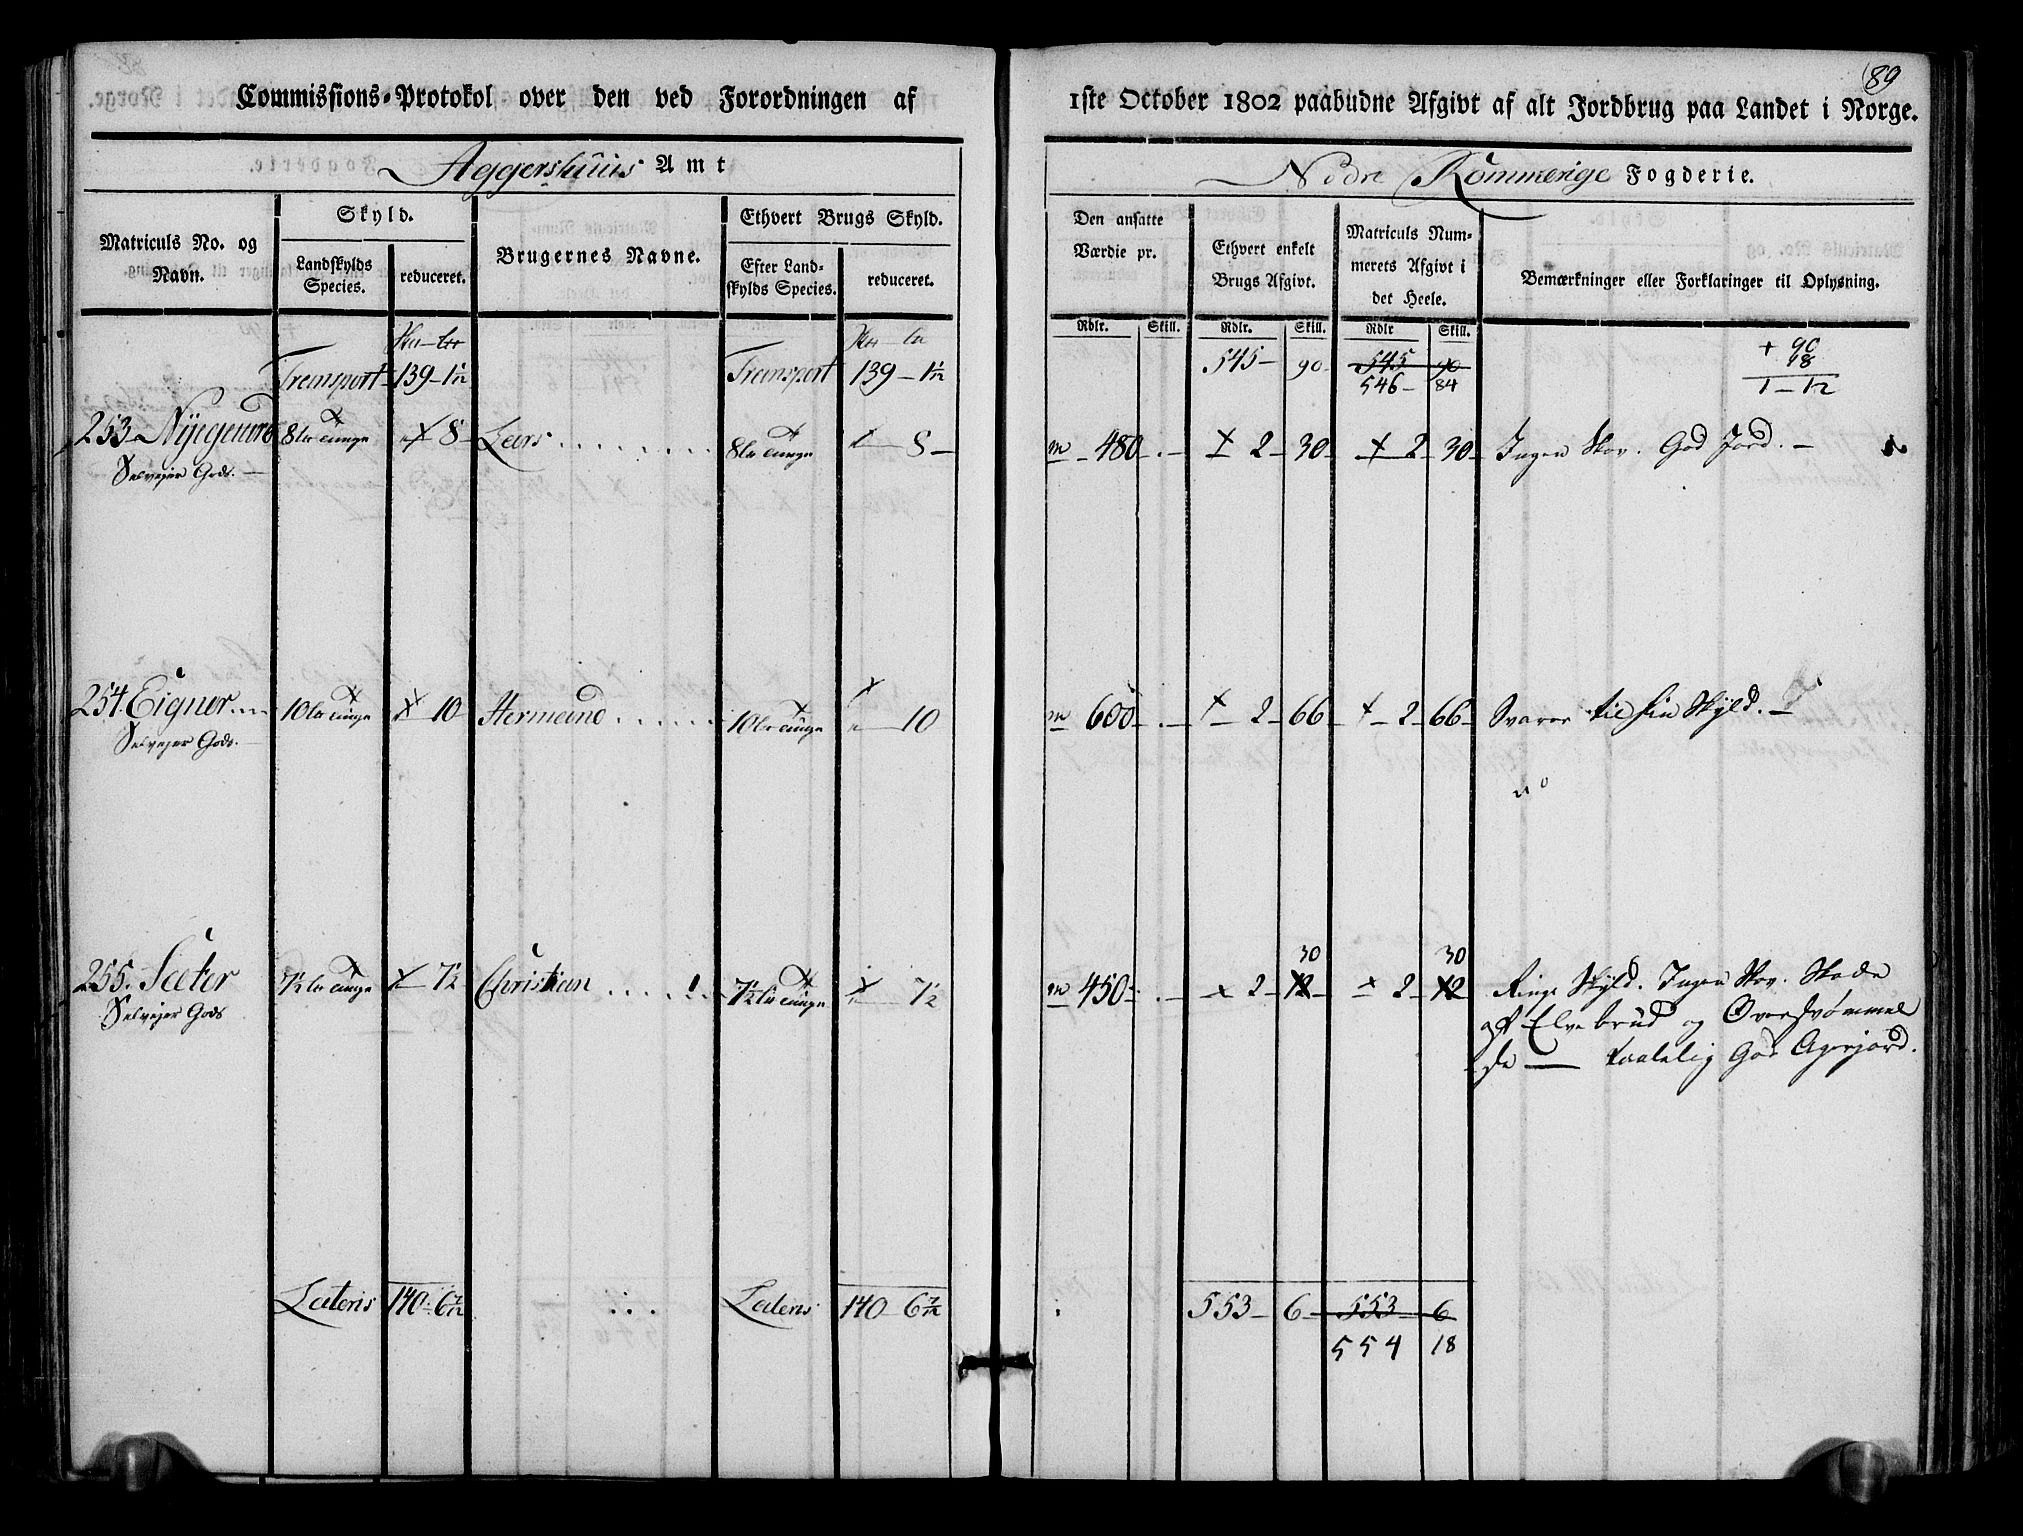 89
Commissions-Protokol over den ved Forordningen af 1ste October 1802 paabudne Afgivt af alt Jordbrug paa Landet i Norge.
Aggershuus Amt
Nedre Rommerige Fogderie.
Matriculs No. og Navn.
Skyld.
Landskylds Species.
reduceret.
Brugernes Navne.
Ethvert Brugs Skyld.
Efter Landskylds Species.
reduceret.
Den ansatte Værdie pr.
Ethvert enkelt Brugs Afgivt.
Matriculs Nummerets Afgivt i det Heele.
Bemærkninger eller Forklaringer til Oplysning.
Rdlr. Skill. Rdlr. Skill. Rdlr Skill.
Transport 139 - 1½ Transport 139 - 1½ 545 - 90 - 545 90 + 90
546 - 84 18
1 - 12
253 Nyegaard 8 lb tunge 8 Lars 8 lb tunge 8 - 480 - 2 - 30 - 2 30 - Ingen Skov. God Jord. -
Selvejer Gods. -
254. Eigner 10 lb tunge 10 Hermand 10 lb tunge 10 600 - 2 - 66 - 2 - 66 - Svarer til sin Skyld. -
Selvejer Gods. -
30 30
255. Sæter 7½ lb tunge 7½ Christian 7½ lb tunge 7½ 450 - 2 - 12 - 2 - 12 Ringe Skyld. Ingen Skov. Skade
Selvejer Gods af Elvebrud og Oversvømmel
se - taalelig God Agerjord.
Lateris 140 - 6 7/12 Lateris 140 - 6 7/12 553 - 6 - 553 - 6
554 18